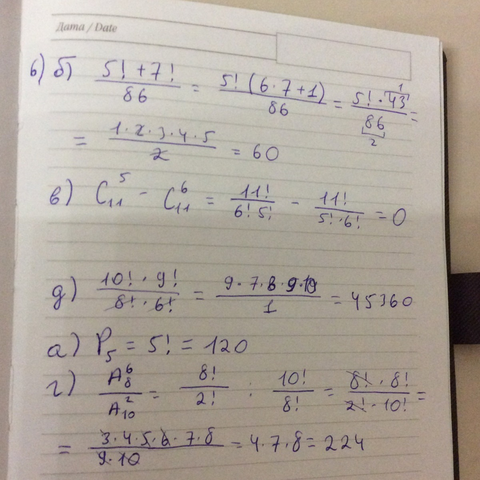 Дата / Date
6) б) (5! + 7!)/86 = 5! (6 · 7 + 1)/86 = 5! · 43/86 =
1
2
= 1 · 2 · 3 · 4 · 5/2 = 60
в) C₁₁⁵ - C₁₁⁶ = 11!/6! 5! - 11!/5! · 6! = 0
д) 10! · 9!/8! · 6! = 9 · 7 · 8 · 9 · 10/1 = 45360
а) P₅ = 5! = 120
г) A₈⁶/A₁₀² = 8!/2! : 10!/8! = 8! · 8!/2! · 10! =
= 3 · 4 · 5 · 6 · 7 · 8/9 · 10 = 4 · 7 · 8 = 224